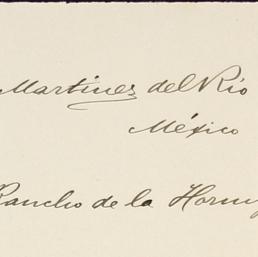 Martinez del Río
México
Rancho de la Hormig